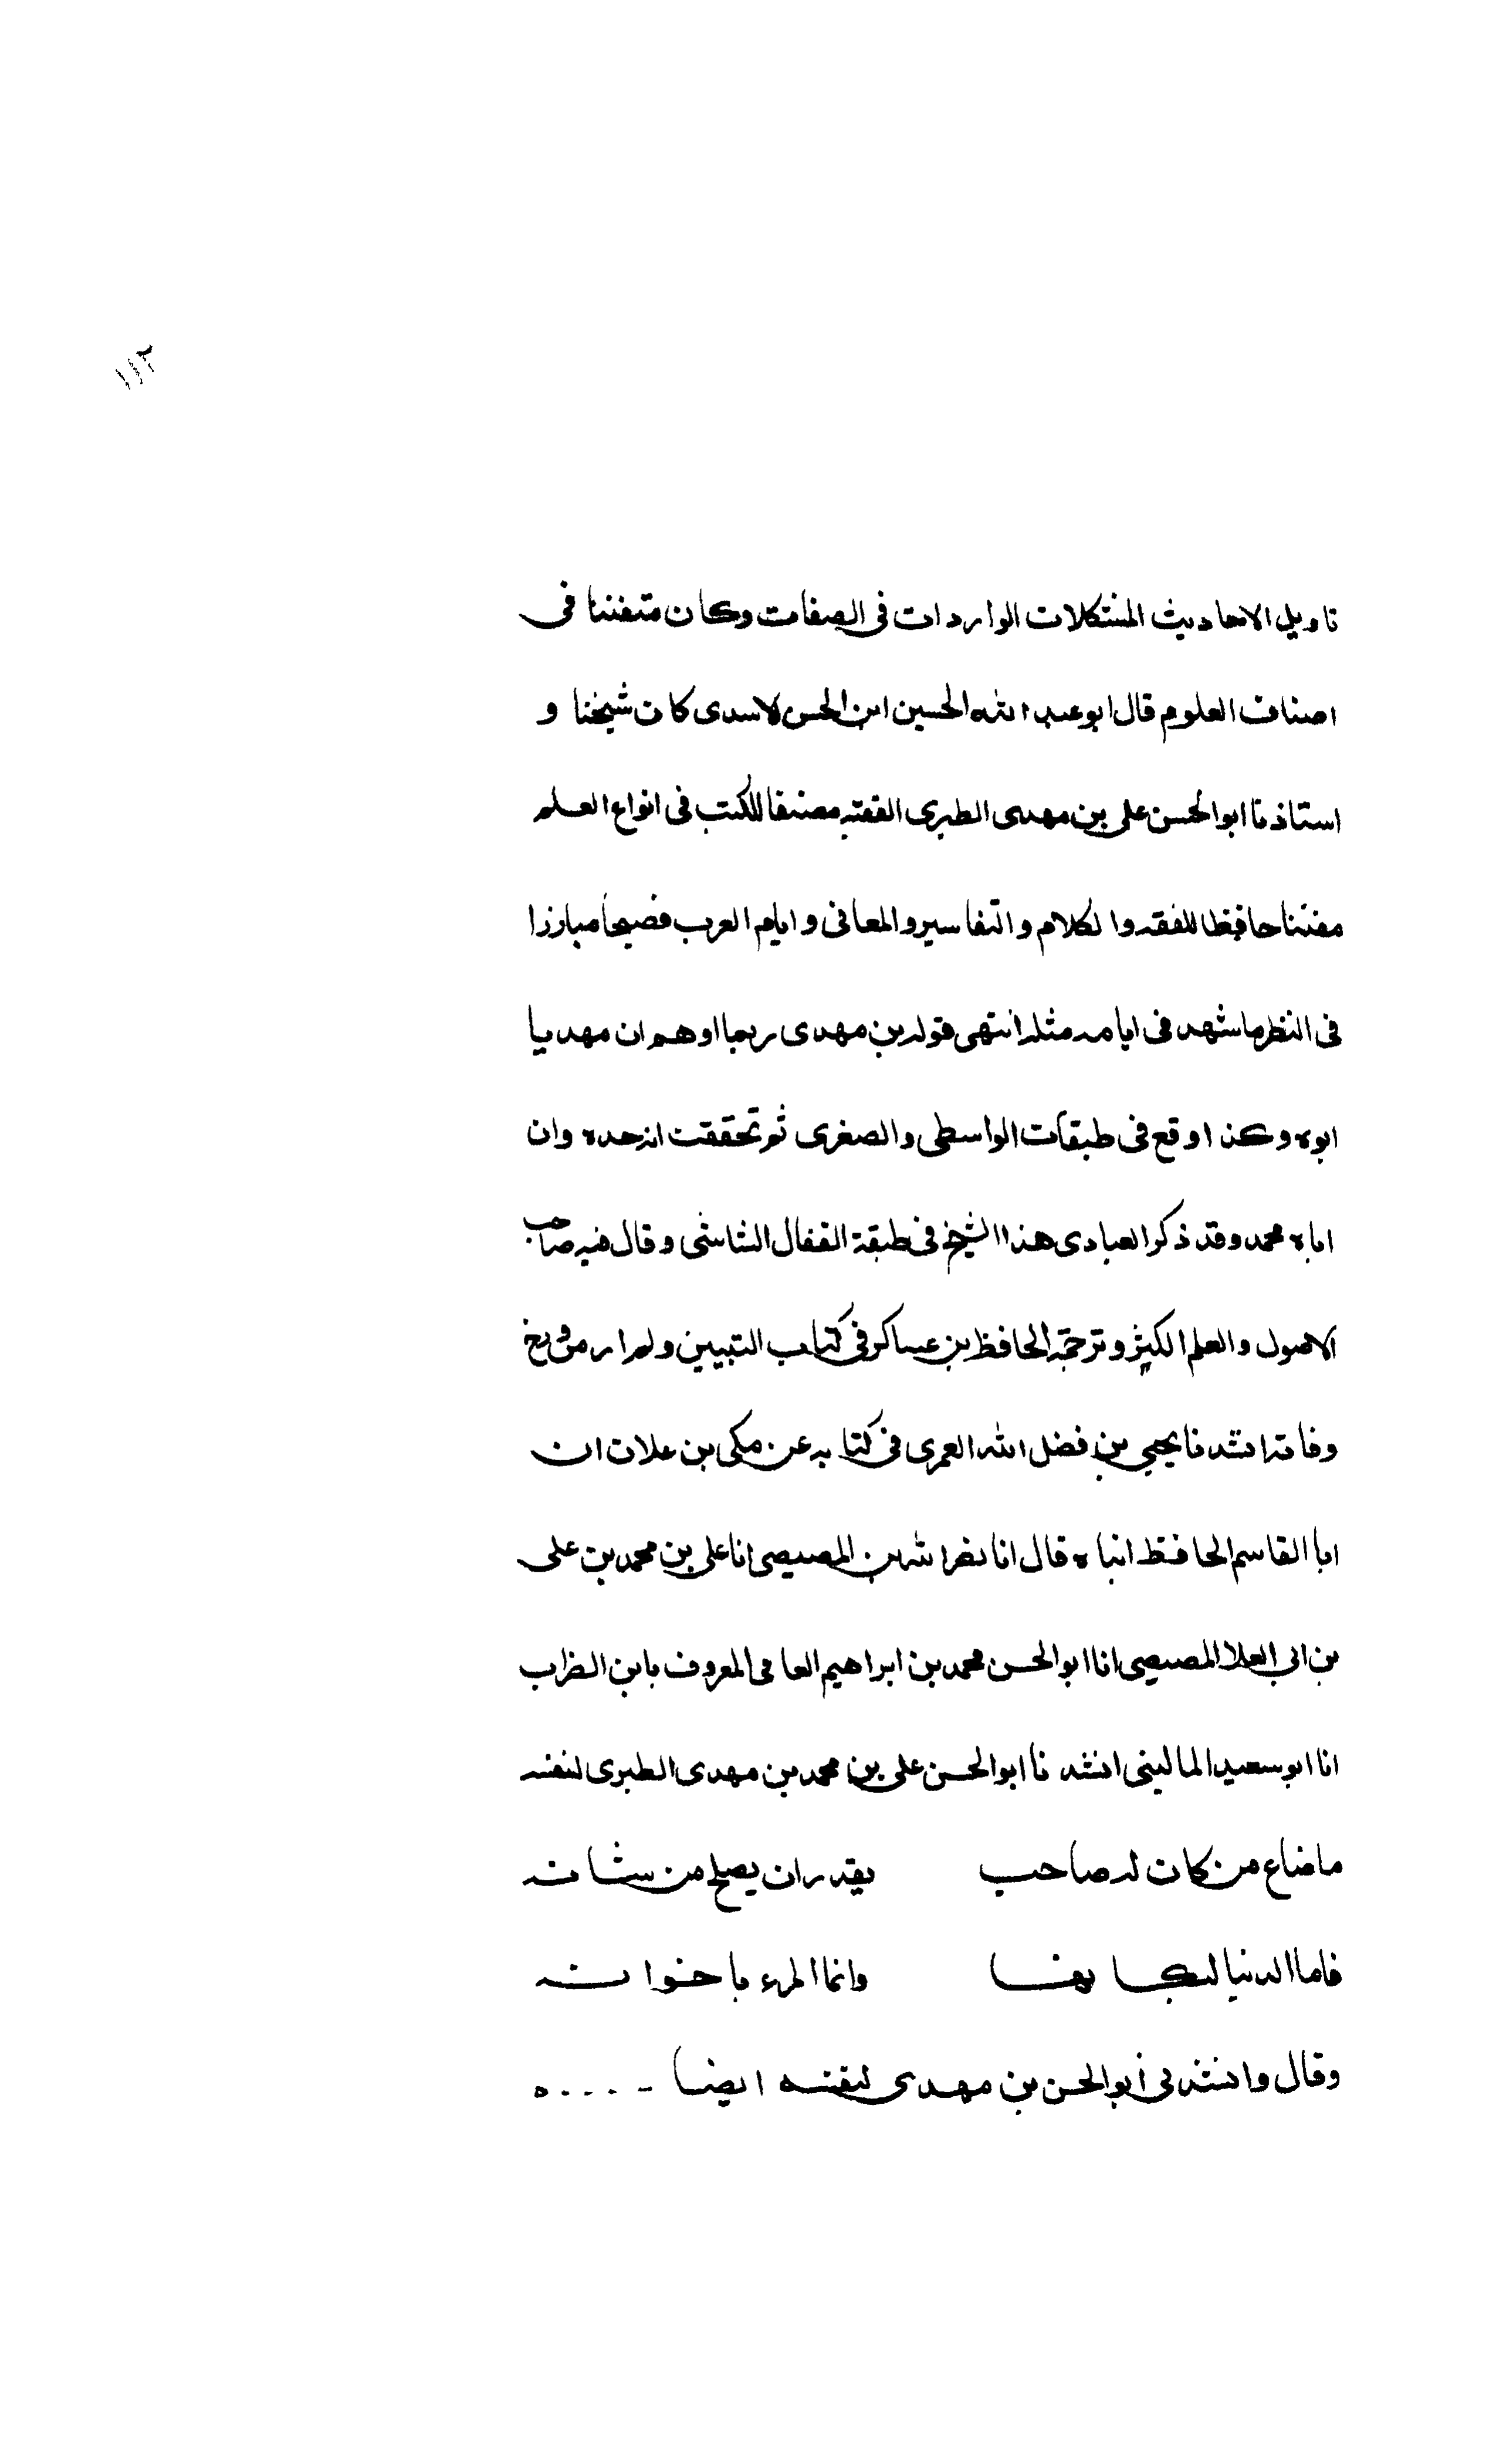 ١١٢
تاويل الاحاديث المشكلات الواردات فى الصفات وكان متفننا فى
اصناف العلوم قال ابو عبد الله الحسين ابن الحسن لاسدى كان شيخنا و
استاذنا ابو الحسن على بن مهدى الطبرى الفقيه مصنفا للكتب فى انواع العلم
مفتنا حافظا للفقه والكلام والتفاسير والمعانى وايام العرب فصيحا مبارزا
فى النظر ما شهد فى ايامه مثله انتهى قوله بن مهدى ربما اوهم ان مهديا
ابوه وكذا وقع فى طبقات الواسطى والصغرى ثم تحققت انه جده وان
اباه محمد وقد ذكر العبادى هذا الشيخ فى طبقة القفال الشاشى وقال فيه صاحب
الاصول والعلم الكثير وترجمة الحافظ بن عساكر فى كتاب التبيين ولم ار من ورخ
وفاته انشدنا يحيى بن فضل الله العمرى فى كتابه عن مكى بن علان ان
ابا القاسم الحافظ انباه قال انا نصر الله بن المصيصى انا على بن محمد بن على
بن ابى العلا المصيصى انا ابو الحسن محمد بن ابراهيم العامى المعروف بابن الضراب
انا ابو سعيد المالينى انشدنا ابو الحسن على بن محمد بن مهدى الطبرى لنفسه
ما ضاع من كان له صاحب يقدر ان يصلح من شانه
فاما الدنيا لسكانها وانما المرء باخوانه
وقال وانشدنى أبو الحسن بن مهدى لنفسه ايضا